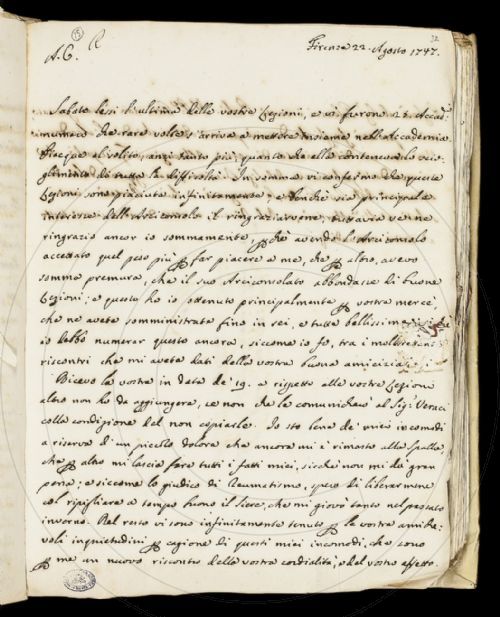 32
15
A. C. R
Firenze 22. Agosto 1747.
Sabato lessi l'ultima delle vostre Lezioni, e vi furono 26. Accad:
numero che rare volte s'arriva a mettere insieme nell'Accademia
Piacque al solito, anzi tanto più, quanto che ella conteneva lo scio-
glimento di tutte le difficoltà. In somma vi confesso che queste
Lezioni sono piaciute infinitamente, e benchè sia principale
interesse dell'Arciconsolo il ringraziarvene, tuttavia ve ne
ringrazio ancor io sommamente, perchè avendo l'Arciconsolo
accettato quel peso più per far piacere a me, che per altro, avevo
somma premura, che il suo Arciconsolato abbondasse di buone
Lezioni; e questo ho io ottenuto principalmente per vostra mercè
che ne avete somministrate fino in sei, e tutte bellissime, sicchè
io debbo numerar questo ancora, siccome io fo, tra i molti
riscontri che mi avete dati della vostra buona amicizia.
Ricevo la vostra in data de' 19. e rispetto alle vostre Lezioni
altro non ho da aggiungere, se non che le comunicherò al Sig.r Veraci
colla condizione del non copiarle. Io sto bene de' miei incomodi
a riserva d'un piccolo dolore che ancora mi è rimasto alla spalla,
che per altro mi lascia fare tutti i fatti miei, sicchè non mi dà gran
pena; e siccome lo giudico di Reumatismo, spero di liberarmene
col ripigliare a tempo buono il siero, che mi giovò tanto nel passato
inverno. Del resto vi sono infinitamente tenuto per le vostre amore-
voli inquietudini per cagione di questi miei incomodi, che sono
per me un nuovo riscontro della vostra cordialità, e del vostro affetto.